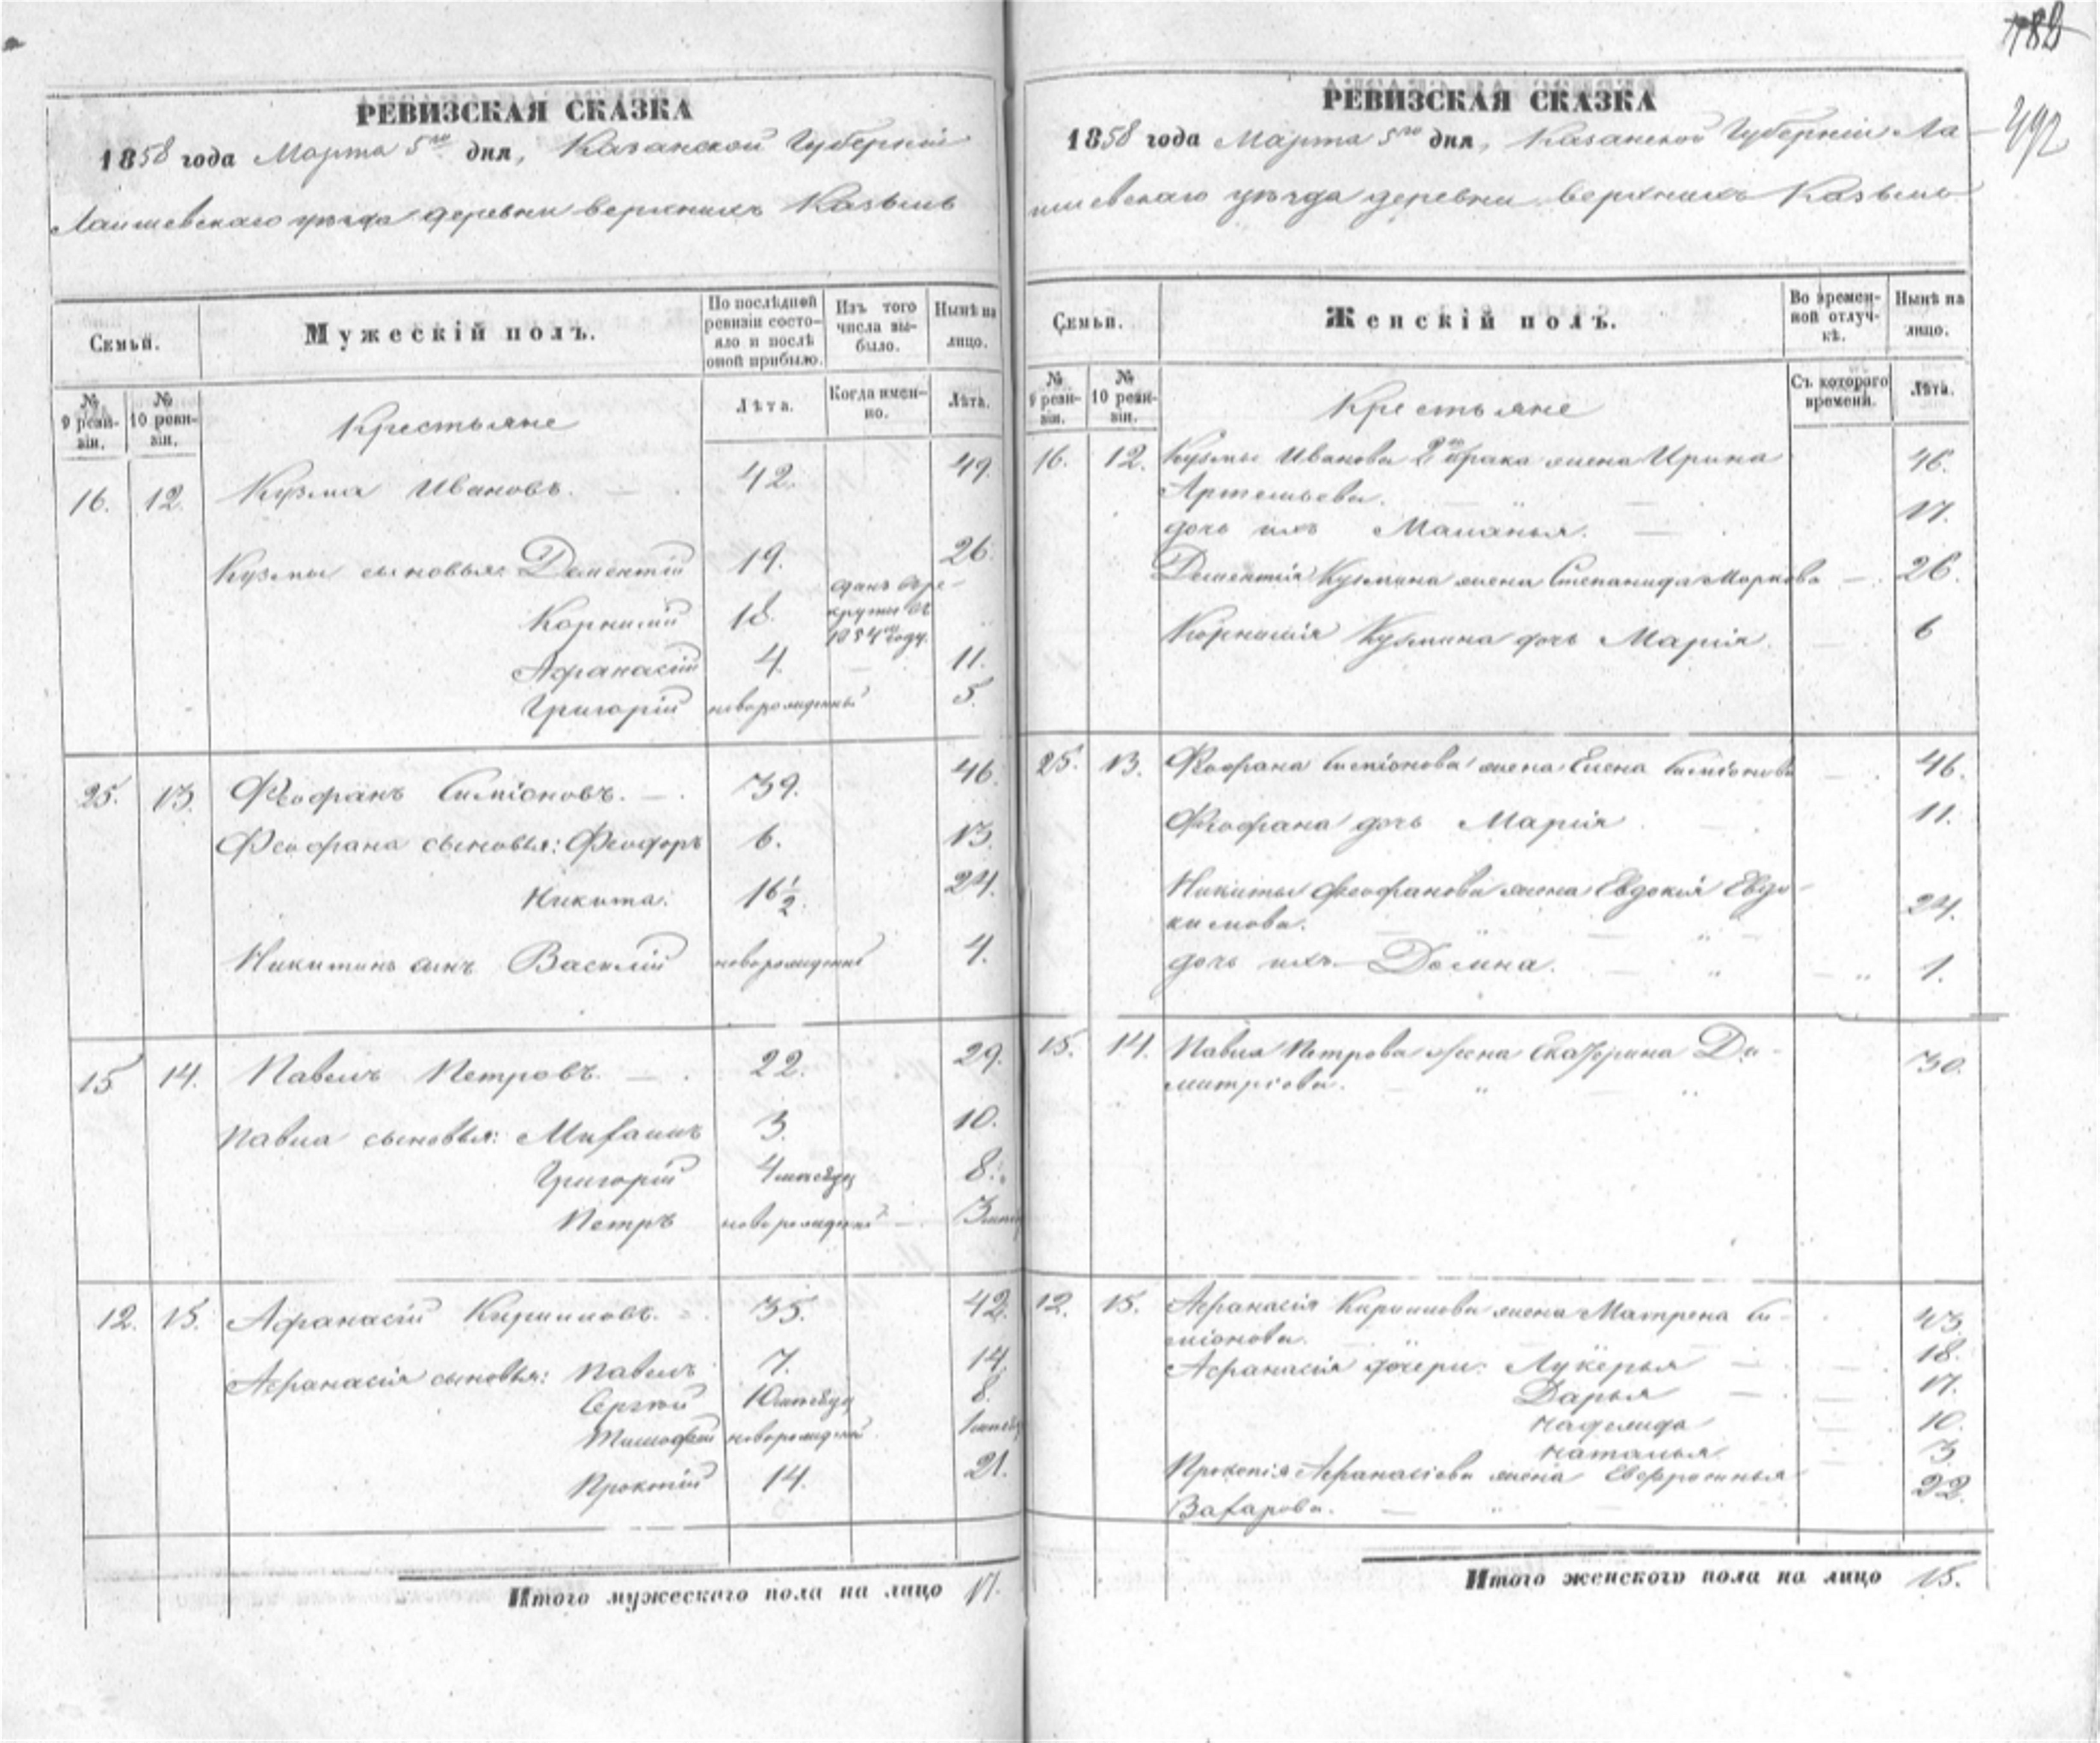 182
492
РЕВИЗСКАЯ СКАЗКА
1858 года Марта 5го дня, Казанской Губерніи
Лаишевскаго уѣзда деревни верхнихъ Казыль
Семьи.
Мужескій полъ.
По послѣдней ревизіи состояло и послѣ оной прибыло.
Изъ того числа выбыло.
Нынѣ на лицо.
№ 9 ревизіи.
№ 10 ревизіи.
Крестьяне
Лѣта.
Когда именно.
Лѣта.
16. 12. Кузма Ивановъ. — . 42. 49.
Кузмы сыновья: Дементій 19. 26.
Корнилій 18. сданъ въ рекруты въ 1854мъ году.
Афанасій 4. — 11.
Григорій новорожденный 5.
25. 13. Феофанъ Симіоновъ. — . 39. 46.
Феофана сыновья: Феодоръ 6. 13.
Никита. 16 1/2. 24.
Никитинъ сынъ Василій новорожденный 4.
15 14. Павелъ Петровъ. — . 22. 29.
Павла сыновья: Михаилъ 3. 10.
Григорій 4 месяцу 8.
Петръ новорожденъ — 3 месяц
12. 15. Афанасій Кириловъ. 35. 42.
Афанасія сыновья: Павелъ 7. 14.
Сергѣй 10 месяцу 8.
Тимофей новорожденный 1 месяц
Прокопій 14. 21.
Итого мужескаго пола на лицо 17.
РЕВИЗСКАЯ СКАЗКА
1858 года Марта 5го дня, Казанской Губерніи Ла
ишевскаго уѣзда деревни верхнихъ Казыль
Семьи.
Женскій полъ.
Во временной отлучкѣ.
Нынѣ на лицо.
№ 9 ревизіи.
№ 10 ревизіи.
Крестьяне
Съ котораго времени.
Лѣта.
16. 12. Кузмы Иванова 2го брака жена Ирина 46.
Артемьева.
дочь ихъ Маланья. — 17.
Дементія Кузмина жена Степанида Маркова — 26.
Корнилія Кузмина дочь Марія. 6
25. 13. Феофана Симіонова жена Елена Симіонова 46.
Феофана дочь Марія 11.
Никиты Феофанова жена Евдокія Евдо-
кимова. 24.
дочь ихъ Домна. 1.
15. 14. Павла Петрова жена Екатерина Ди-
митріева. 30.
12. 15. Афанасія Кирилова жена Матрена Си-
міонова. 43.
Афанасія дочери: Лукерья 18.
Дарья 17.
Надежда 10.
Наталья 3.
Прокопія Афанасіева жена Евфросинья
Захарова. 22.
Итого женскаго пола на лицо 15.